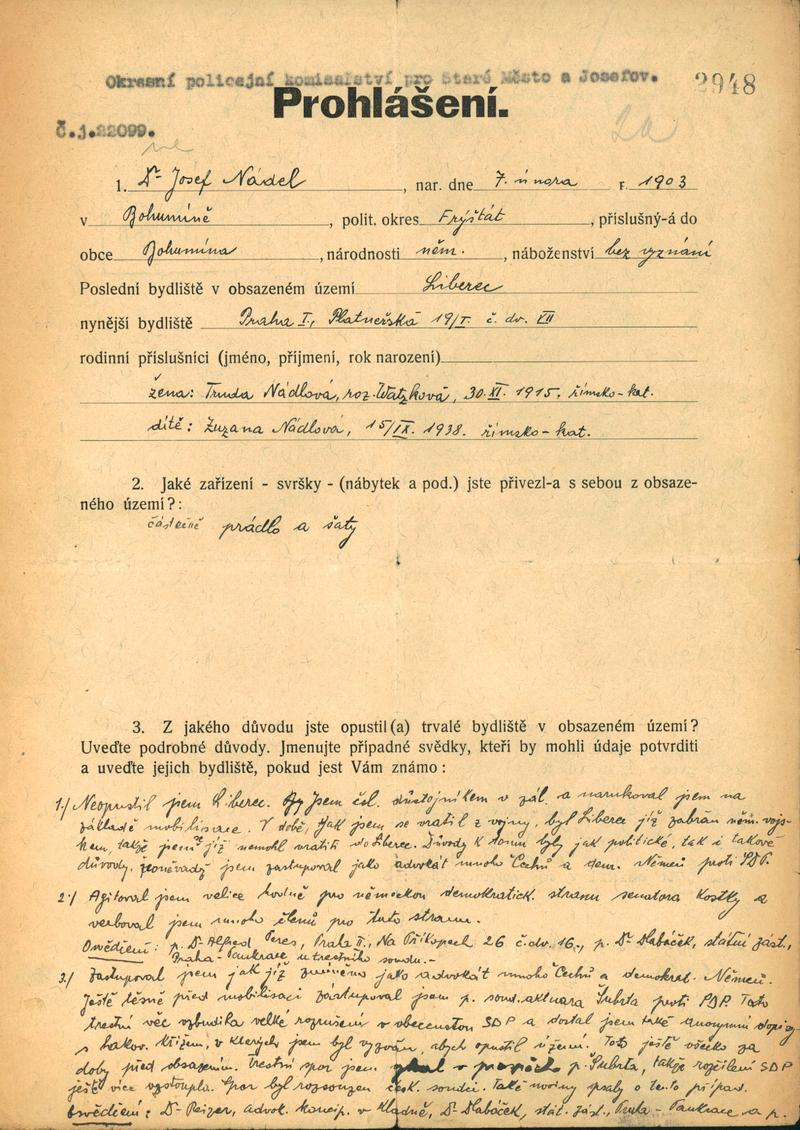 Okresní policejní komisařství pro Staré Město a Josefov.
2948
Prohlášení.
č.j.22099.
2a
1. Dr Josef Nádel, nar. dne 7. února r. 1903
v Bohumíně, polit. okres Fryštát, příslušný-á do
obce Bohumína, národnosti něm., náboženství bez vyznání
Poslední bydliště v obsazeném území Liberec
nynější bydliště Praha I., Platnéřská 19/I. č. dv. VII
rodinní příslušníci (jméno, příjmení, rok narození)
žena: Truda Nádlová, roz. Watzková, 30.XI. 1915. římsko-kat.
dítě: Zuzana Nádlová, 15/IX. 1938. římsko-kat.
2. Jaké zařízení - svršky - (nábytek a pod.) jste přivezl-a s sebou z obsaze-
ného území?:
částečně prádlo a šaty
3. Z jakého důvodu jste opustil(a) trvalé bydliště v obsazeném území?
Uveďte podrobné důvody. Jmenujte případné svědky, kteří by mohli údaje potvrditi
a uveďte jejich bydliště, pokud jest Vám známo:
1./ Neopustil jsem Liberec. Jsem čsl. důstojníkem v zál. a narukoval jsem na
základě mobilisace. V době, jak jsem se vrátil z vojny, byl Liberec již zabrán něm. vojs-
kem, takže jsem se již nemohl vrátit do Liberce. Důvody k tomu byly jak politické, tak i takové
důvody, že jsem zastupoval jako advokát mnoho Čechů a dem. Němců proti SDP.
2./ Agitoval jsem velice hodně pro německou demokratick. stranu senátora Kostky a
verboval jsem mnoho členů pro tuto stranu.
Osvědčení: p. Dr Alfred Peres, Praha II., Na Příkopech 26 č. dv. 16., p. Dr Hlabáček, státní zást.,
Praha-Pankrac u trestního soudu.-
3./ Zastupoval jsem jak již zmíněno jako advokát mnoho Čechů a demokrat. Němců.
Ještě těsně před mobilisací zastupoval jsem p. soud. aktuára Šubrta proti SDP. Tato
trestní věc vzbudila velké rozrušení v obecenstvu SDP a dostal jsem také anonymní dopisy
s hakov. křížem, v kterých jsem byl vyzván, abych opustil území. Toto ještě všecko za
doby před obsazením. Trestní spor jsem p. Šubrta, takže rozčílení SDP
ještě více vzstoupla. Spor byl rozsouzen česk. soudci. Také noviny psaly o tento případ.
Osvědčení: Dr Reizer, advok. koncip. v Kladně, Dr Hlabáček, stát. zást., Praha-Pankrac a p.